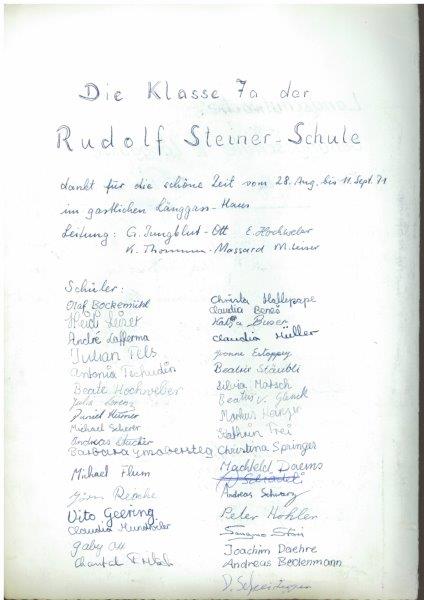 Die Klasse 7a der
Rudolf Steiner-Schule
dankt für die schöne Zeit vom 28. Aug. bis 11. Sept. 71
im gastlichen Länggass-Haus
Leitung: G. Jungblut-Ott E. Hochweber
K. Thommen-Massard M. Leiser
Schüler:
Olaf Bockemühl
Heidi
André Lafferma
Julian Fels
Antonia Tschudin
Beate Hochweber
Julia Lorenz
Daniel
Michael Scherer
Andreas
Barbara
Michael Flum
Jörn
Vito Geering
Claudia
Gaby Ott
Chantal
Christa
Claudia Beneš
Katja Buser
Claudia Müller
Yvonne Estoppey
Beatrice Stäubli
Silvia Matsch
Beatrix v. Glenck
Markus
Kathrin Frei
Christina Springer
Machteld Daems
Andreas Schwarz
Peter Hohler
Joachim Daehre
Andreas Beckenmann